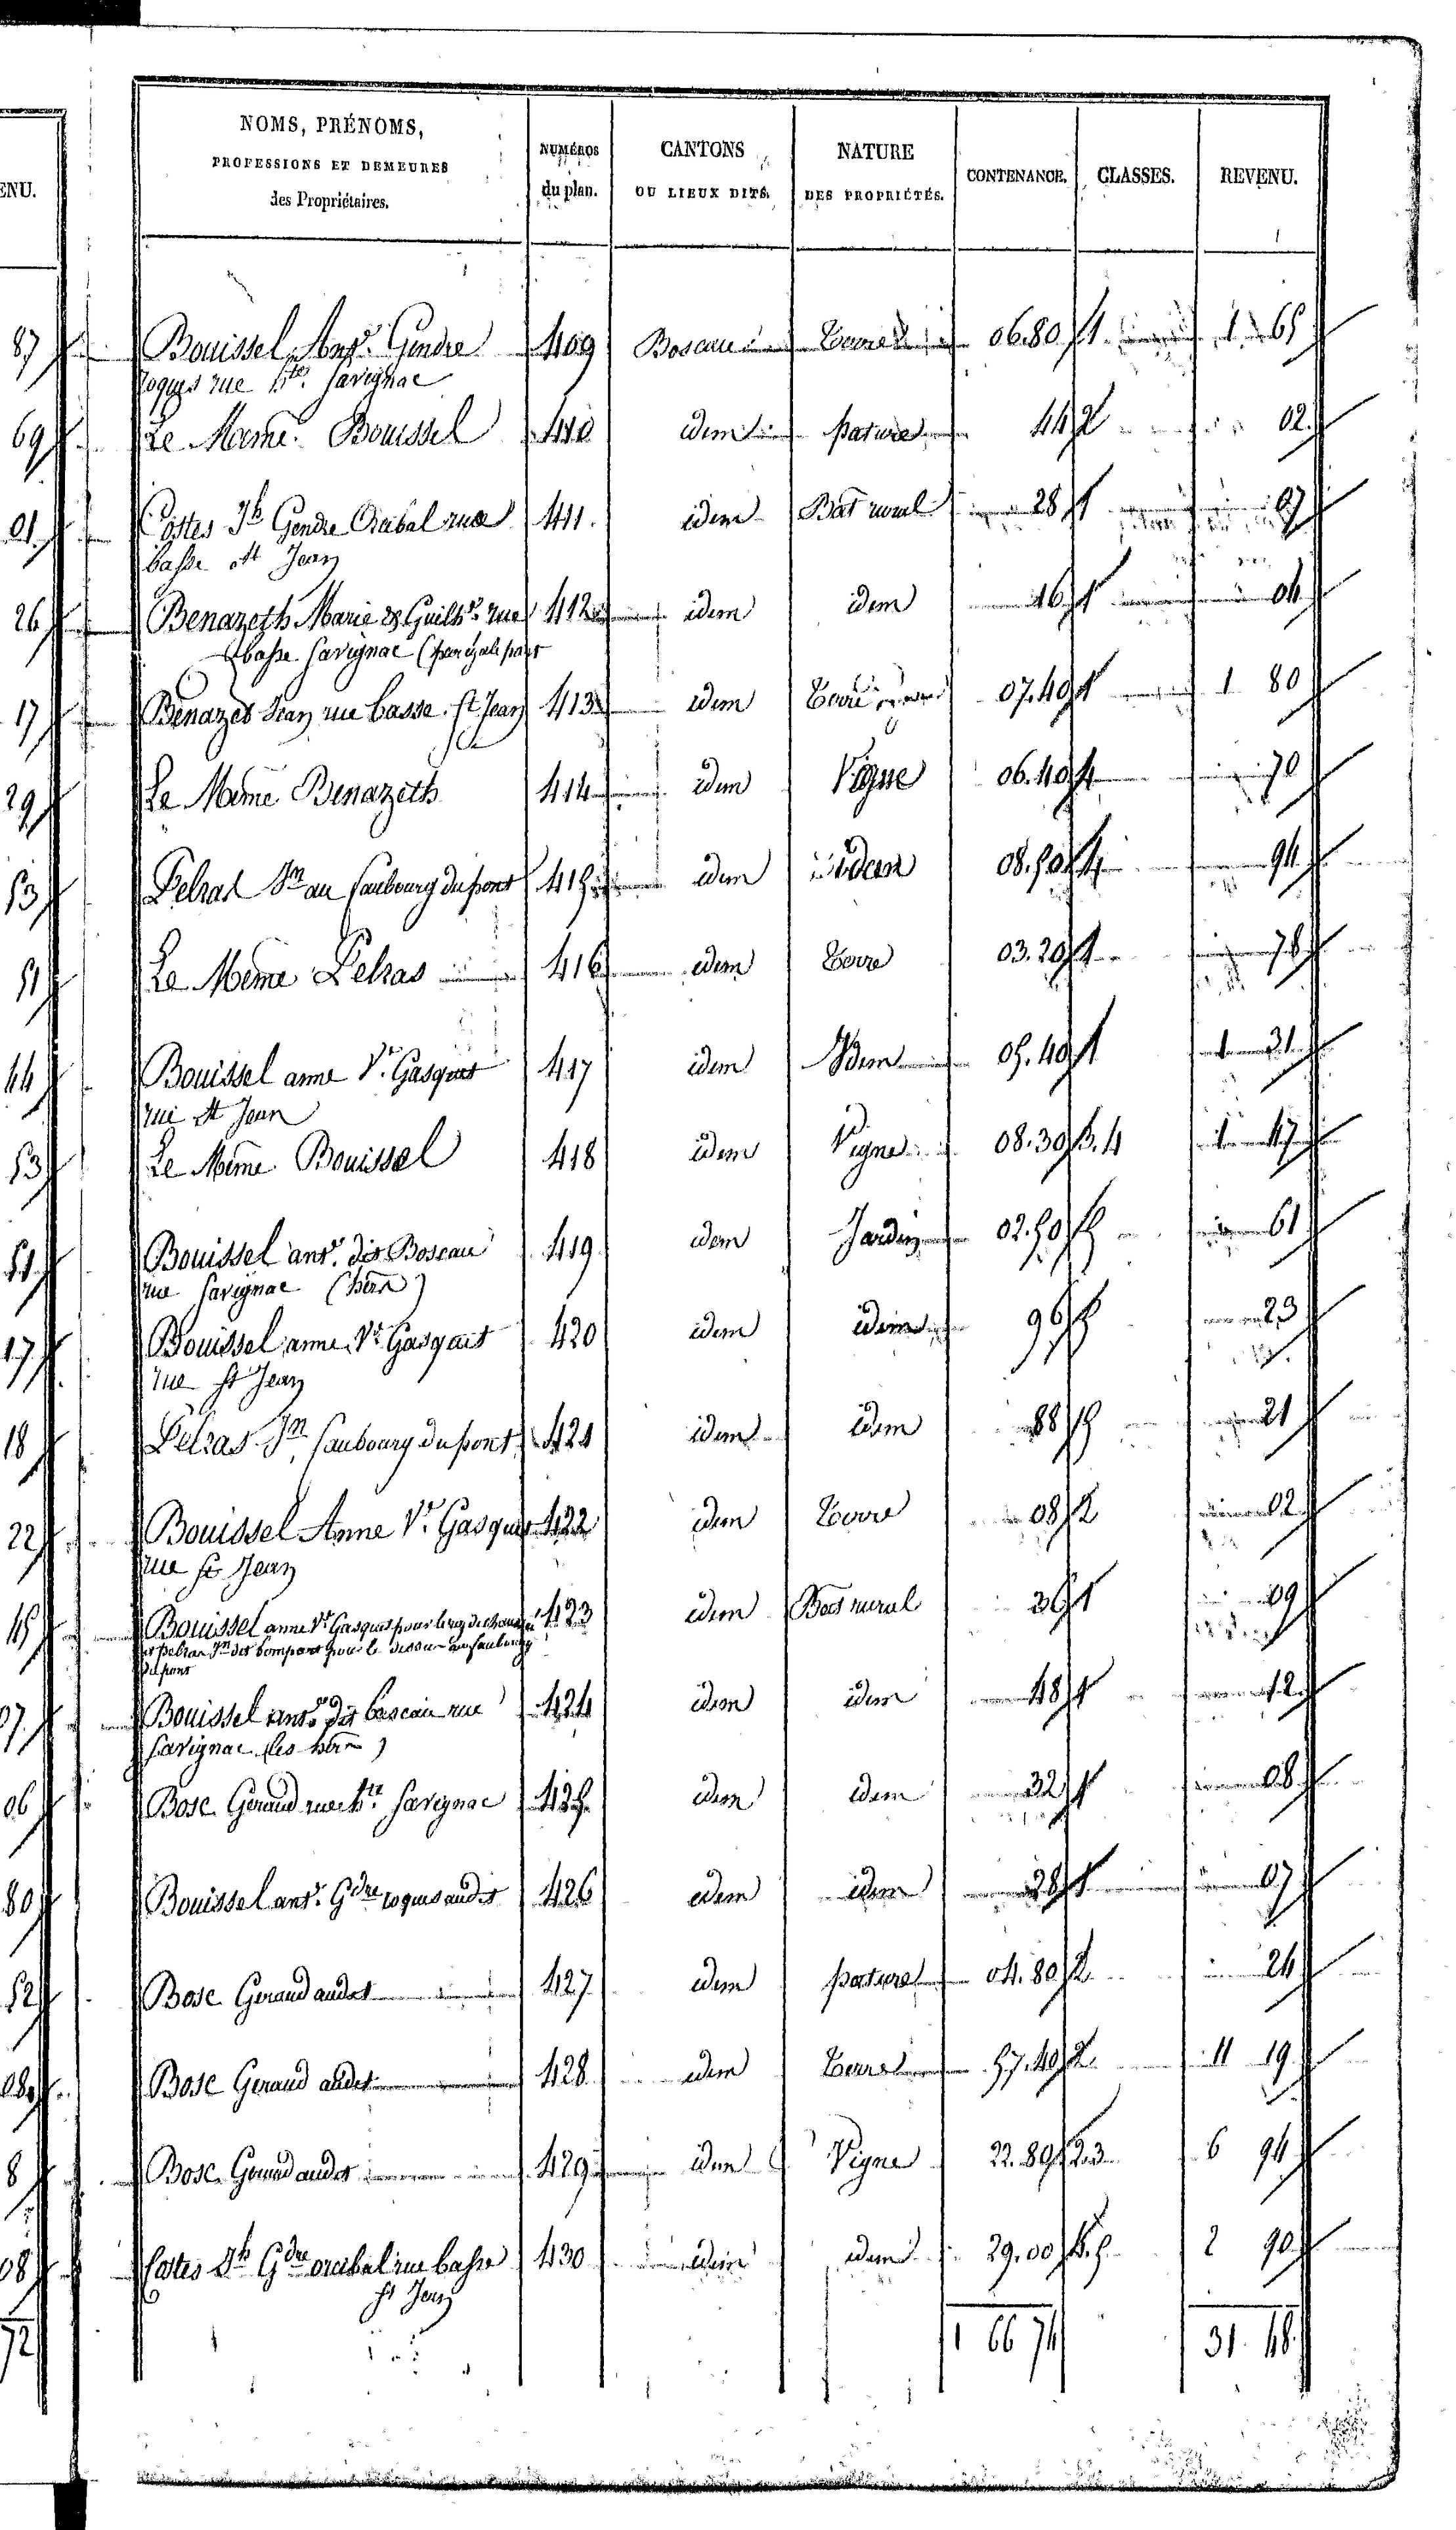 NOMS, PRÉNOMS, PROFESSIONS ET DEMEURES des Propriétaires. NUMÉROS du plan. CANTONS OU LIEUX DITS. NATURE DES PROPRIÉTÉS. CONTENANCE. CLASSES. REVENU.
ENU.
87 Bouissel Ant.e Gendre 409 Boscau Terre 06.80 1 1 65
roques rue h.te Savignac
69 Le Même Bouissel 410 idem pature 44 2 02
01 Costes Jh Gendre Crabal rue 411 idem Bat rural 28 1 07
basse St Jean
26 Benazeth Marie & Guilh.e rue 412 idem idem 16 1 04
basse Savignac (par égale part
17 Benazet Jean rue basse St Jean 413 idem Terre 07.40 1 1 80
29 Le Même Benazeth 414 idem Vigne 06.40 4 70
53 Pelras Jn au faubourg du pont 415 idem idem 08.50 4 94
51 Le Même Pelras 416 idem Terre 03.20 1 78
44 Bouissel anne Ve Gasquet 417 idem Idem 05.40 1 1 31
rue St Jean
53 Le Même Bouissel 418 idem Vigne 08.30 3.4 1 47
51 Bouissel ant.e dit Boscau 419 idem Jardin 02.50 5 61
rue Savignac (hérs)
17 Bouissel anne Ve Gasquet 420 idem idem 96 5 23
rue St Jean
18 Pelras Jn faubourg du pont 421 idem idem 88 5 21
22 Bouissel Anne Ve Gasquet 422 idem Terre 08 2 02
rue St Jean
45 Bouissel anne Ve Gasquet pour le rez de chaussée 423 idem Bat rural 36 1 09
et pelras Jn dit pour le dessus au faubourg
du pont
07 Bouissel ant.e dit boscau rue 424 idem idem 48 1 12
Savignac (les hérs)
06 Bosc Geraud rue h.te Savignac 425 idem idem 32 1 08
80 Bouissel ant.e Gdre roques audit 426 idem idem 28 1 07
52 Bosc Geraud audit 427 idem pature 04.80 2 24
08 Bosc Geraud audit 428 idem Terre 57.40 2 11 19
8 Bosc Geraud audit 429 idem Vigne 22.80 2.3 6 94
08 Costes Jh Gdre crabal rue basse 430 idem idem 29.00 4.5 2 90
St Jean
72 1 66 74 31 48